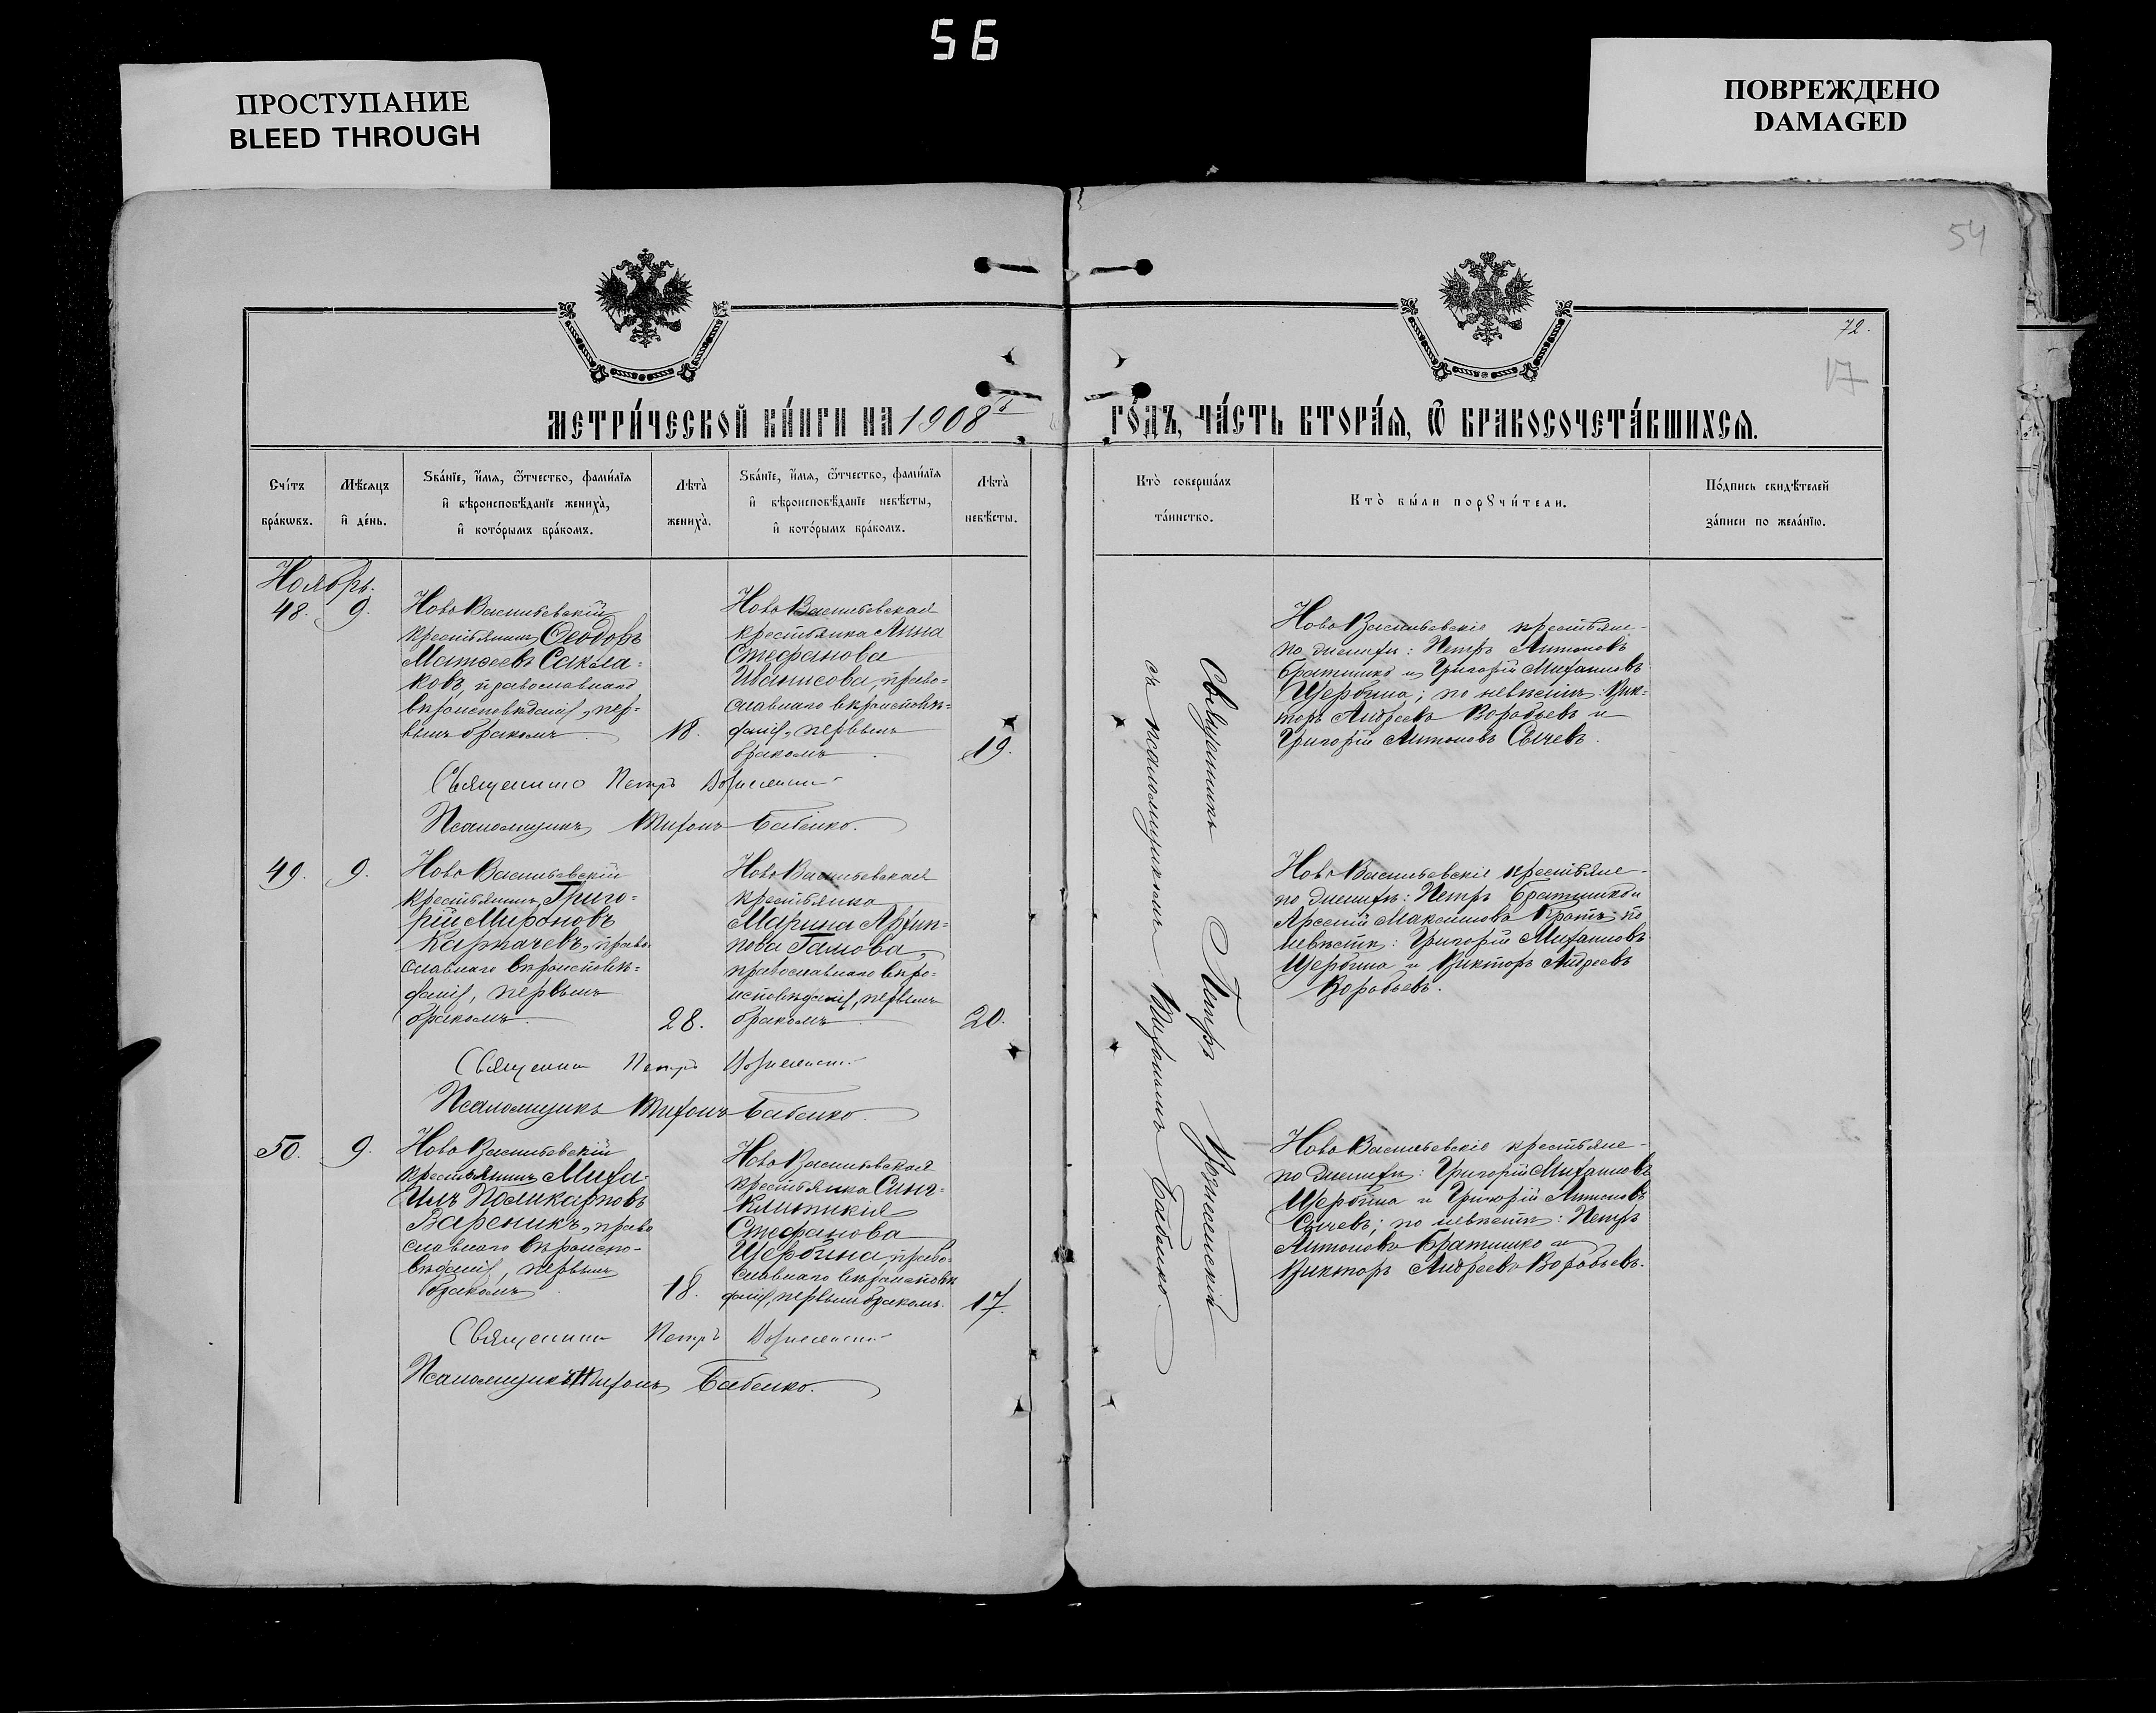 56
ПРОСТУПАНИЕ
BLEED THROUGH
ПОВРЕЖДЕНО
DAMAGED
54
72.
17
МЕТРИ́ЧЕСКОЙ КНИ́ГИ НА 1908й
ГО́ДЪ, ЧА́СТЬ ВТОРА́Ѧ, Ѿ БРАКОСОЧЕТА́ВШИХСѦ.
Сче́тъ
бра́кѡвъ.
Мѣ́сѧцъ
и҆ де́нь.
Ѕва́нїе, и҆́мѧ, ѻ҆́тчество, фами́лїѧ
и҆ вѣроисповѣ́данїе жениха̀,
и҆ кото́рымъ бра́комъ.
Лѣ́та̀
жениха̀.
Ѕва́нїе, и҆́мѧ, ѻ҆́тчество, фами́лїѧ
и҆ вѣроисповѣ́данїе невѣ́сты,
и҆ кото́рымъ бра́комъ.
Лѣ́та̀
невѣ́сты.
Кто̀ соверша́лъ
та́инство.
Кто̀ бы́ли порꙋчи́тели.
По́дпись свидѣ́телей
за́писи по жела́нїю.
Ноябрь.
48.
9.
НовоВасильевскій
крестьянинъ Ѳеодоръ
Матѳеевъ Сакола=
ковъ, православнаго
вѣроисповѣданія, пер=
вымъ бракомъ
18.
НовоВасильевская
крестьянка Анна
Стефанова
Иванисова, право=
славнаго вѣроисповѣ=
данія, первымъ
бракомъ
19.
НовоВасильевскіе крестьяне
по женихѣ: Петръ Антоновъ
Братишко и Григорій Михаиловъ
Щербина; по невѣстѣ: Вик=
торъ Андреевъ Воробьевъ и
Григорій Антоновъ Сычевъ.
Священникъ Петръ Вознесенскій
Псаломщикъ Тихонъ Бабенко.
49.
9.
НовоВасильевскій
крестьянинъ Григо=
рій Мироновъ
Карпачевъ, право
славнаго вѣроисповѣ=
данія, первымъ
бракомъ
28.
НовоВасильевская
крестьянка
Марина Архип=
пова Гамова,
православнаго вѣро=
исповѣданія, первымъ
бракомъ
20.
НовоВасильевскіе крестьяне
по женихѣ: Петръ Братишко и
Арсеній Максимовъ Кротъ по
невѣстѣ: Григорій Михаиловъ
Щербина и Викторъ Андреевъ
Воробьевъ.
Священникъ Петръ Вознесенскій
Псаломщикъ Тихонъ Бабенко.
50.
9.
НовоВасильевскій
крестьянинъ Миха=
илъ Поликарповъ
Вареникъ, право
славнаго вѣроиспо-
вѣданія, первымъ
бракомъ
18.
НовоВасильевская
крестьянка Син=
клитикія
Стефанова
Щербина, право=
славнаго вѣроисповѣ
данія, первымъ бракомъ.
17.
НовоВасильевскіе крестьяне
по женихѣ: Григорій Михаиловъ
Щербина и Григорій Антоновъ
Сычевъ; по невѣстѣ: Петръ
Антоновъ Братишко и
Викторъ Андреевъ Воробьевъ.
Священникъ Петръ Вознесенскій
Псаломщикъ Тихонъ Бабенко.
Священникъ Петръ Вознесенскій
съ псаломщикомъ Тихономъ Бабенко.